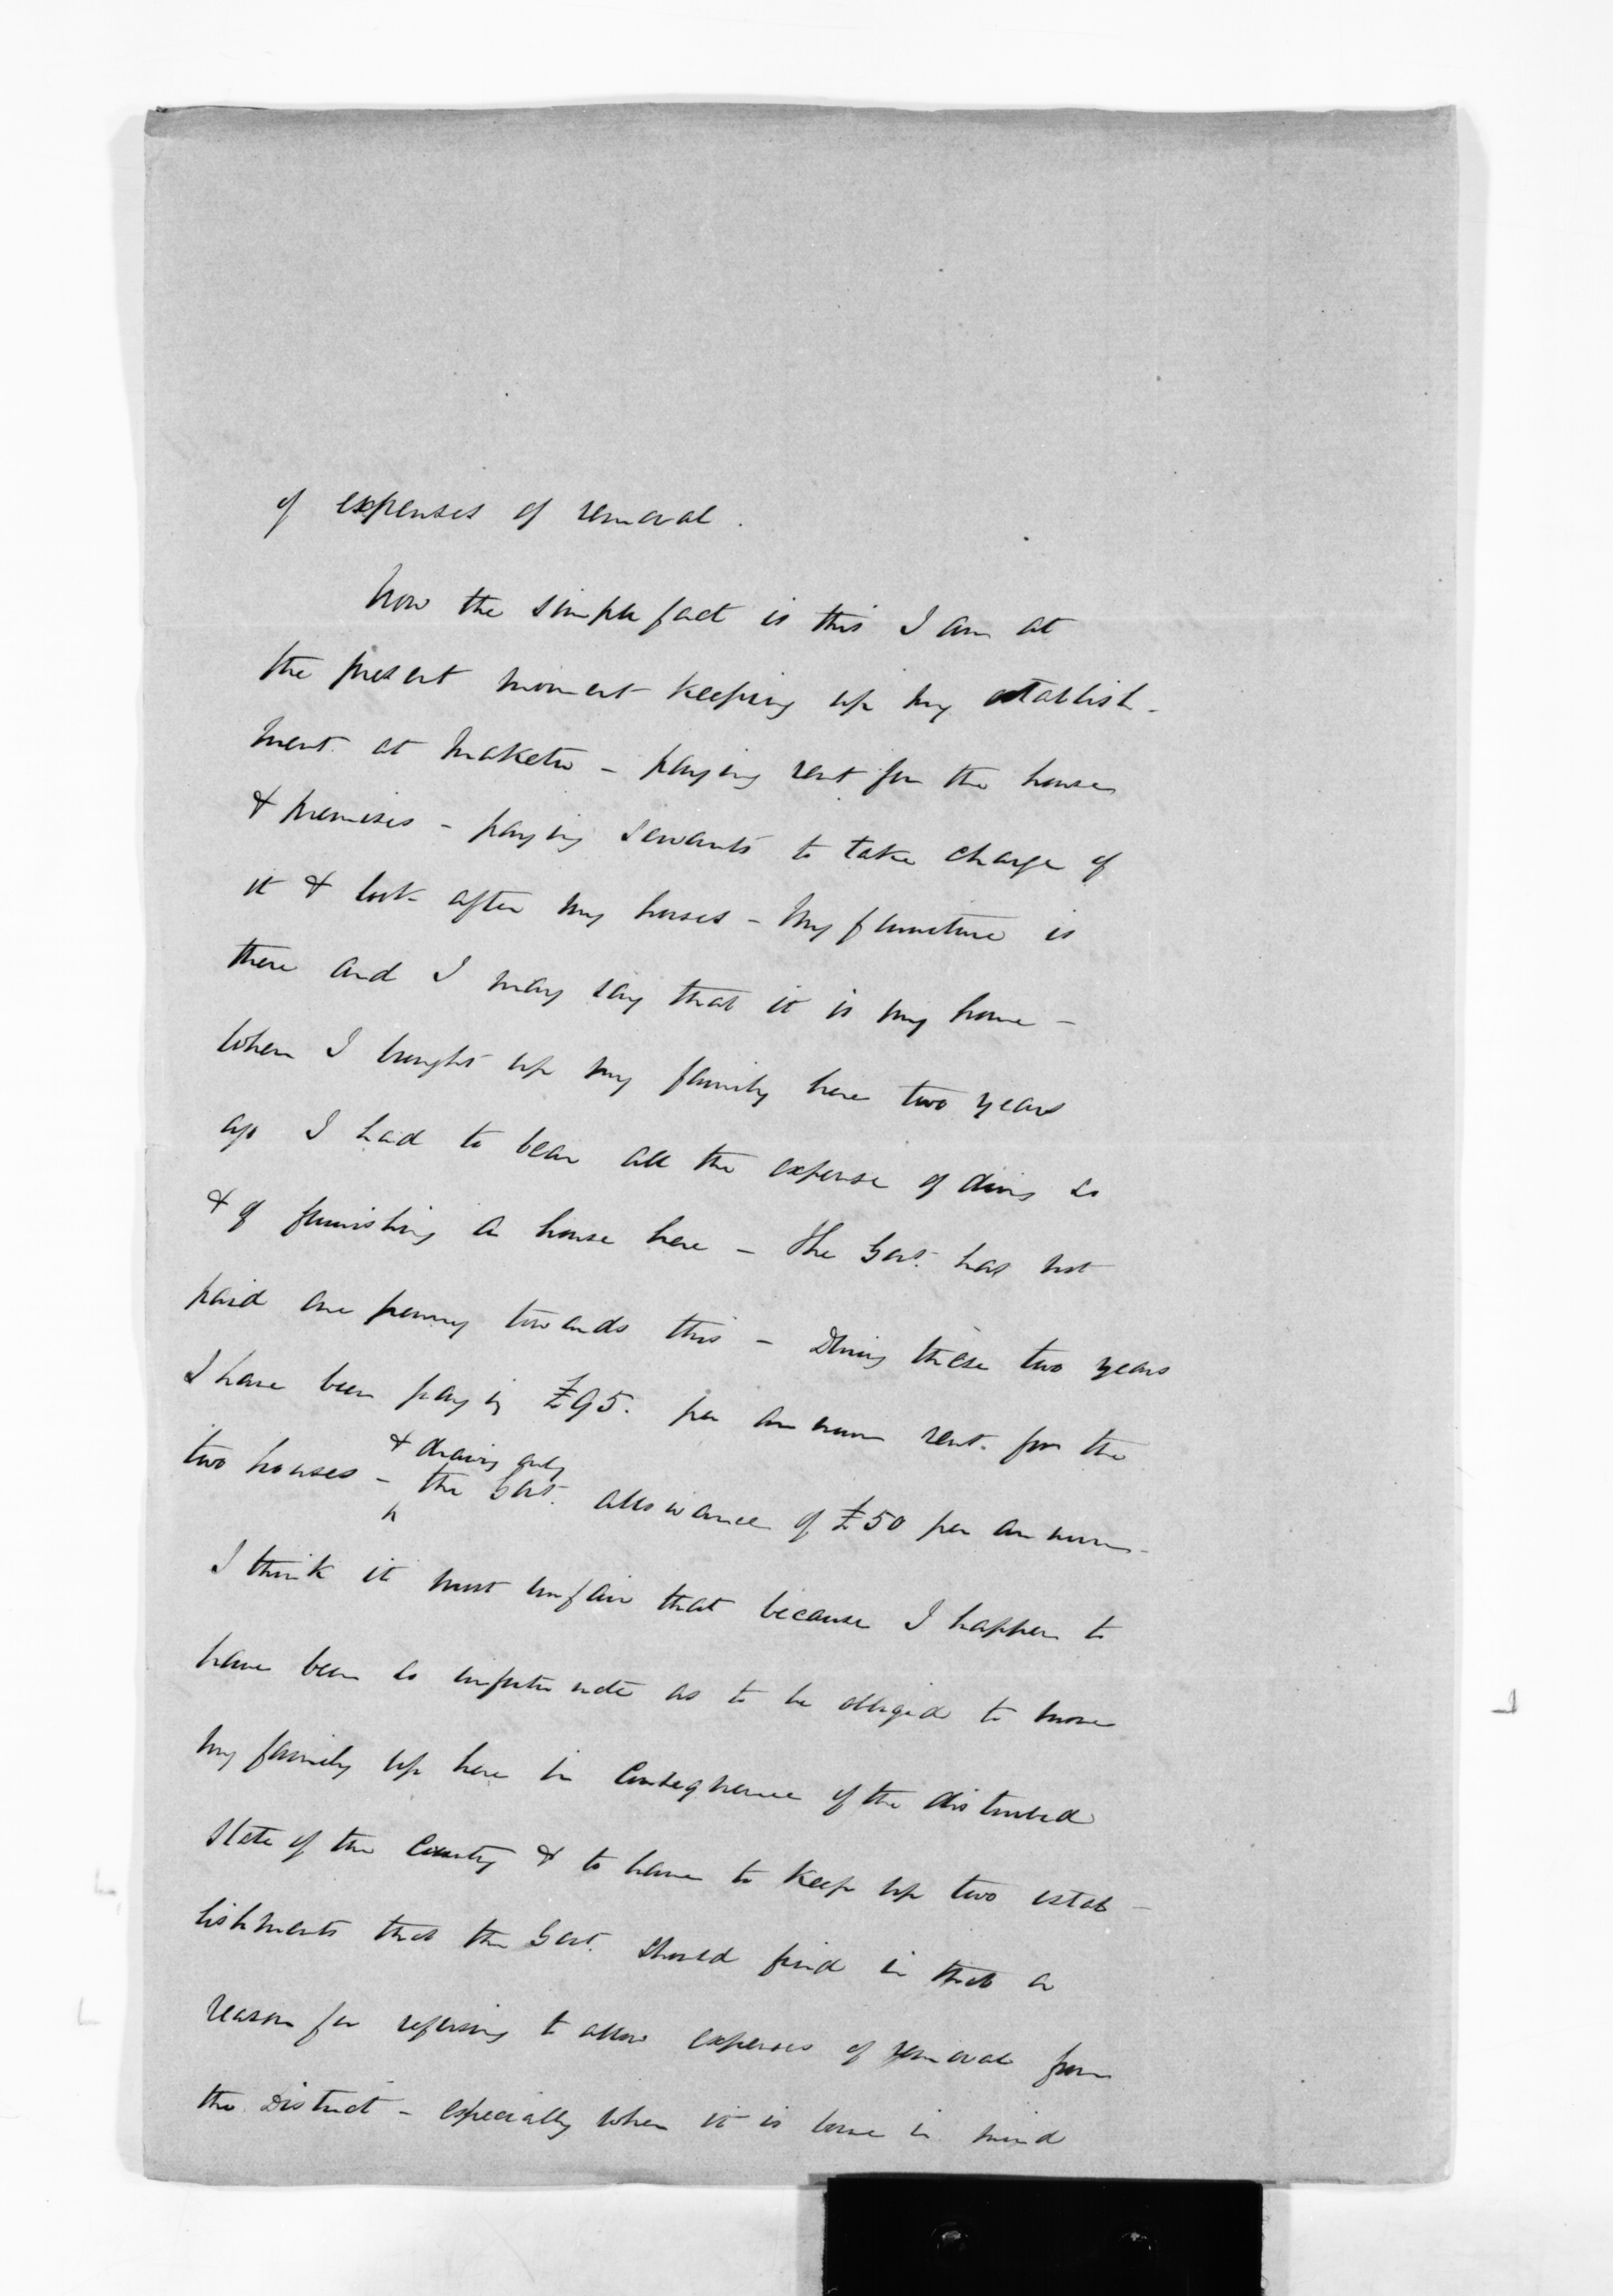 of expenses of removal.
Now the simple fact is this I am at
the present moment keeping up my establish-
ment at Maketu - paying rent for the house
& premises - paying servants to take charge of
it & look after my horses - My furniture is
there and I may say that it is my home -
When I brought up my family here two years
ago I had to bear all the expense of doing so
& of furnishing a house here - The Govt. has not
paid one penny towards this - During these two years
I have been paying £95. per annum rent for the
& drawing only
two houses - the Govt. allowance of £50 per annum -
I think it most unfair that because I happen to
have been so unfortunate as to be obliged to move
my family up here in consequence of the disturbed
state of the Country & to have to keep up two estab-
lishments that the Govt. should find in that a
reason for refusing to allow expenses of removal from
the District - especially when it is borne in mind